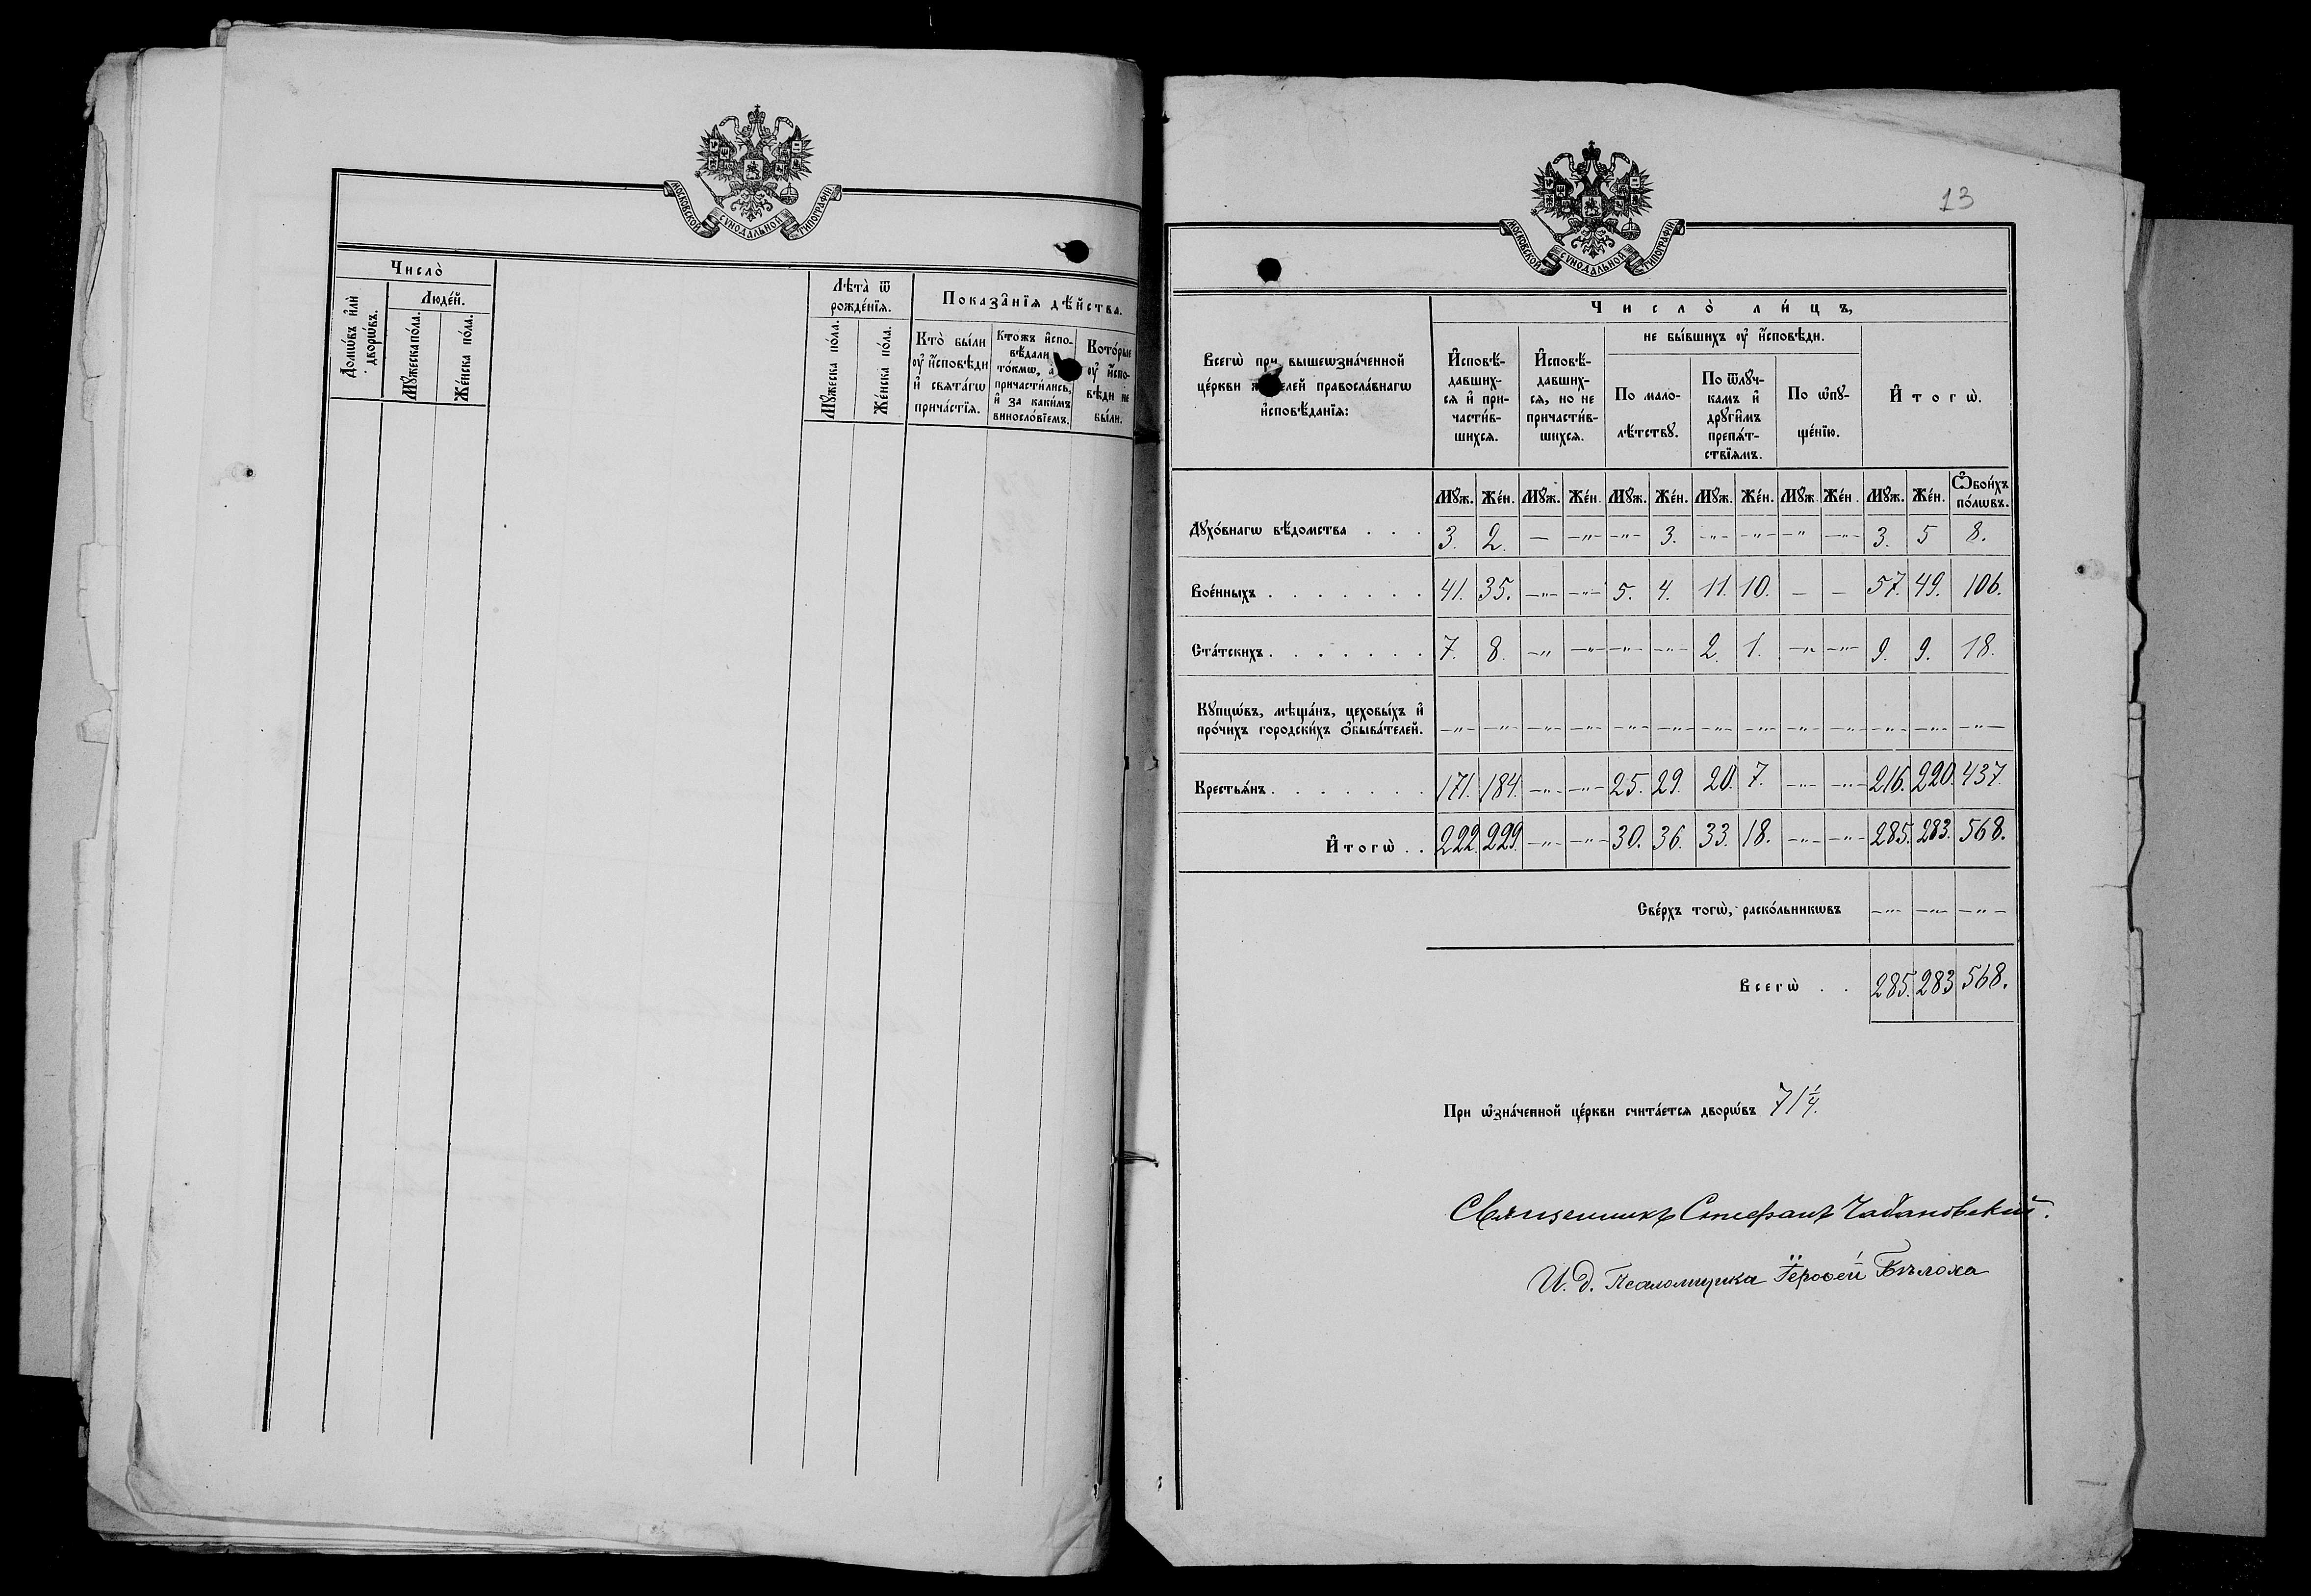 МОСКОВСКОЙ СѴНОДАЛЬНОЙ ТИПОГРАФІИ
Число̀
Домѡ́въ и҆лѝ дворѡ́въ.
Люде́й.
Мꙋ́жеска по́ла.
Же́нска по́ла.
Лѣта̀ ѿ рожде́нїѧ.
Мꙋ́жеска по́ла.
Же́нска по́ла.
Показа̑нїѧ дѣ́йства.
Кто̀ бы́ли
ᲂу҆ и҆́сповѣди
и҆ свѧта́гѡ
прича́стїѧ.
Ктожъ и҆спо-
вѣ́дали
то́кмѡ, а҆
причасти́лись,
и҆ за каки́мъ
винослові́емъ.
Кото́рые
ᲂу҆ и҆́спо-
вѣди не
бы́ли.
13
МОСКОВСКОЙ СѴНОДАЛЬНОЙ ТИПОГРАФІИ
Всегѡ̀ при вышеѡзна́ченной
це́ркви жителей правосла́внагѡ
и҆сповѣ́данїѧ:
Число̀ ли́цъ,
И҆сповѣ́-
давших-
сѧ и҆ при-
части́в-
шихсѧ.
И҆сповѣ́-
давших-
сѧ, но не
причасти́в-
шихсѧ.
не бы́вшихъ ᲂу҆ и҆́сповѣди.
По мало-
лѣ́тствꙋ.
По ѿлꙋ́ч-
камъ и҆
дрꙋги̑мъ
препѧ́т-
ствїѧмъ.
По ѡ҆пꙋ-
ще́нїю.
И҆тогѡ̀.
Мꙋ́ж. Же́н. Мꙋ́ж. Же́н. Мꙋ́ж. Же́н. Мꙋ́ж. Же́н. Мꙋ́ж. Же́н. Мꙋ́ж. Же́н. Ѻ҆бои́хъ по́лѡвъ.
Дꙋхо́внагѡ вѣ́домства . . . 3. 2. — —"— —"— 3. —"— —"— —" —"— 3. 5 8.
Вое́нныхъ . . . . . . . 41. 35. —"— —"— 5. 4. 11. 10. — — 57. 49. 106.
Ста́тскихъ . . . . . . . 7. 8. —" —"— —"— —"— 2. 1. —"— —"— 9. 9. 18.
Кꙋпцѡ́въ, мѣща́нъ, цеховы́хъ и҆
про́чихъ городски́хъ ѻ҆быва́телей. —"— —"— —"— —"— —"— —"— —"— —"— —"— —"— —"— —"— —"—
Крестьѧ́нъ . . . . . . . 171. 184. —"— —"— 25. 29. 20. 7. —"— —"— 216. 220. 437.
И҆тогѡ̀ . . 222. 229. —"— —"— 30. 36. 33. 18. —"— —"— 285. 283. 568.
Све́рхъ тогѡ̀, раско́льникѡвъ —"— —"— —"—
Всегѡ̀ . . 285. 283 568.
При ѡ҆зна́ченной це́ркви счита́етсѧ дворѡ́въ 71 1/4.
Священникъ Стефанъ Чабановскій.
И. д. Псаломщика Іероѳей Бѣлоха